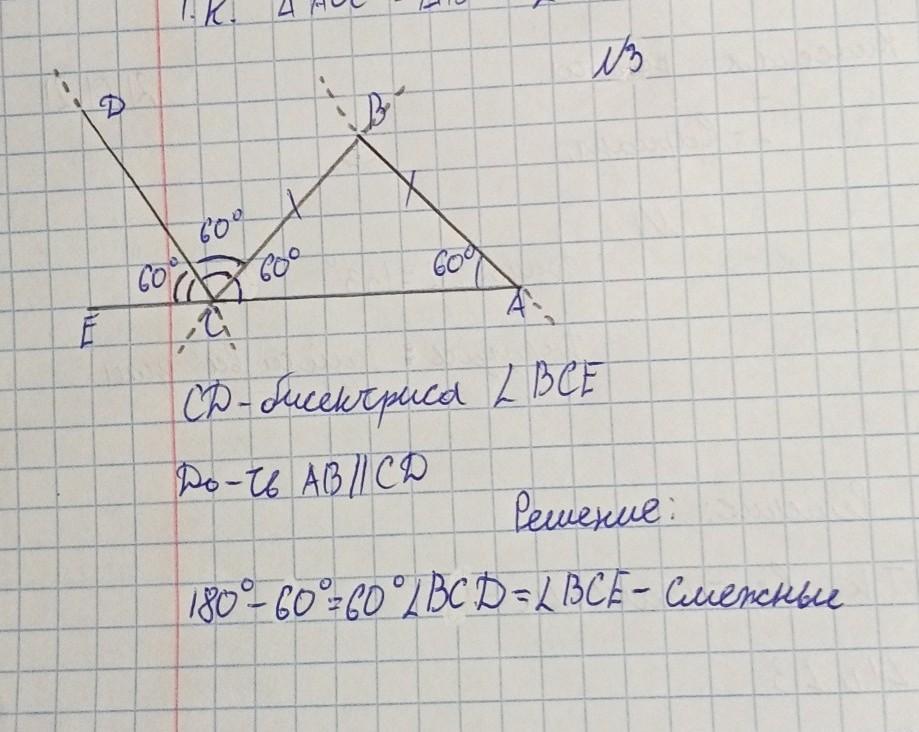 т.к.
N3
D
B
60°
60°
60°
60°
E
C
A
CD-биссектриса ∠BCE
До-ть AB||CD
Решение:
180°-60°=60°∠BCD=∠BCE-смежные